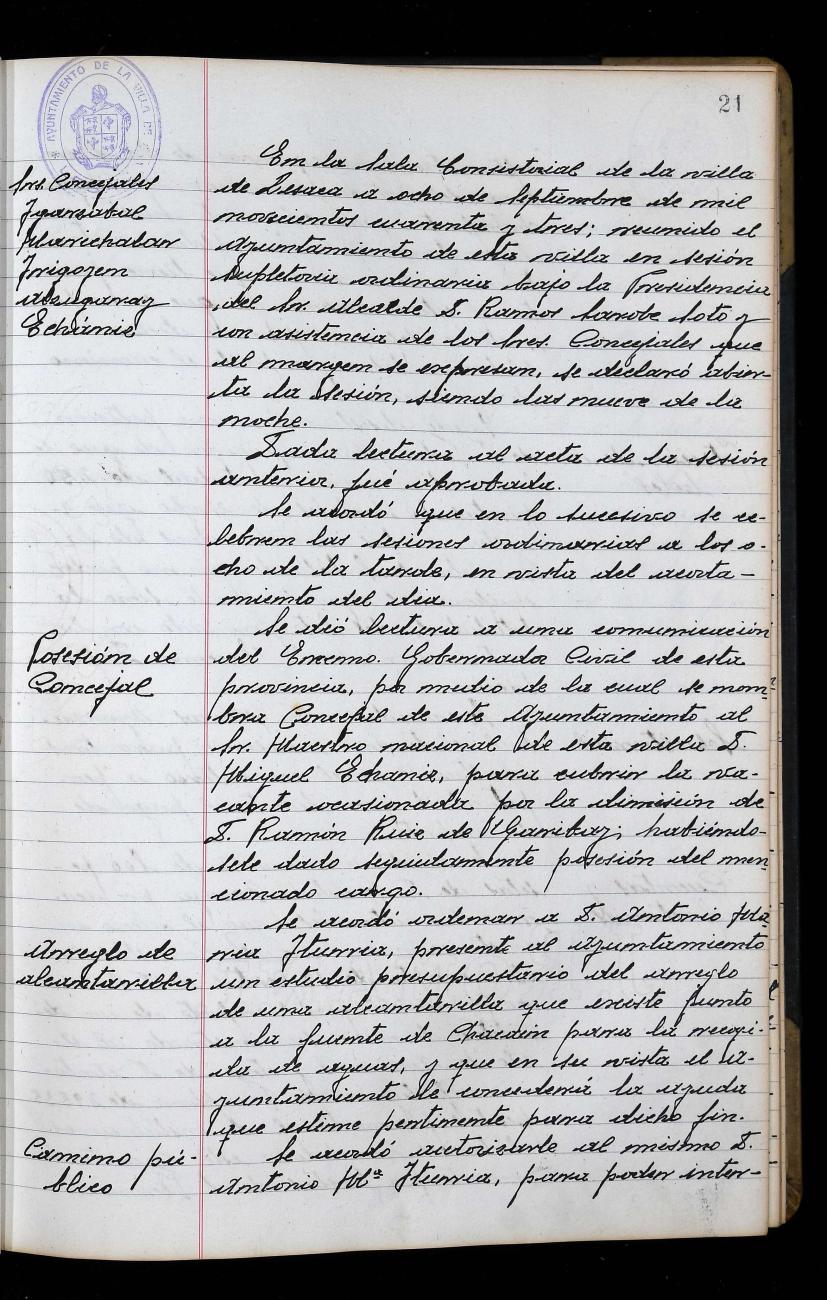 21
AYUNTAMIENTO DE LA VILLA DE
Sres. Concejales
Iparzabal
Marichalar
Irigoyen
Alzugaray
Echániz
En la Sala Consistorial de la villa
de Lesaca a ocho de Septiembre de mil
novecientos cuarenta y tres; reunido el
Ayuntamiento de esta villa en sesión
supletoria ordinaria bajo la Presidencia
del Sr. Alcalde D. Ramos Sarobe Soto y
con asistencia de los Sres. Concejales que
al margen se expresan, se declaró abier-
ta la sesión, siendo las nueve de la
noche.
Dada lectura al acta de la sesión
anterior, fué aprobada.
Se acordó que en lo sucesivo se ce-
lebren las sesiones ordinarias a las o-
cho de la tarde, en vista del acorta-
miento del dia.
Posesión de
Concejal
Se dió lectura a una comunicación
del Excmo. Gobernador Civil de esta
provincia, por medio de la cual se nom-
bra Concejal de este Ayuntamiento al
Sr. Maestro nacional de esta villa D.
Miguel Echaniz, para cubrir la va-
cante ocasionada por la dimisión de
D. Ramón Ruiz de Garibay, habiéndo-
sele dado seguidamente posesión del men-
cionado cargo.
Arreglo de
alcantarilla
Se acordó ordenar a D. Antonio Ma
ria Iturria, presente al Ayuntamiento
un estudio presupuestario del arreglo
de una alcantarilla que existe junto
a la fuente de Chacain para la recogi-
da de aguas, y que en su vista el A-
yuntamiento le concederá la ayuda
que estime pertinente para dicho fin.
Camino pú-
blico
Se acordó autorizarle al mismo D.
Antonio Mª Iturria, para poder inter-